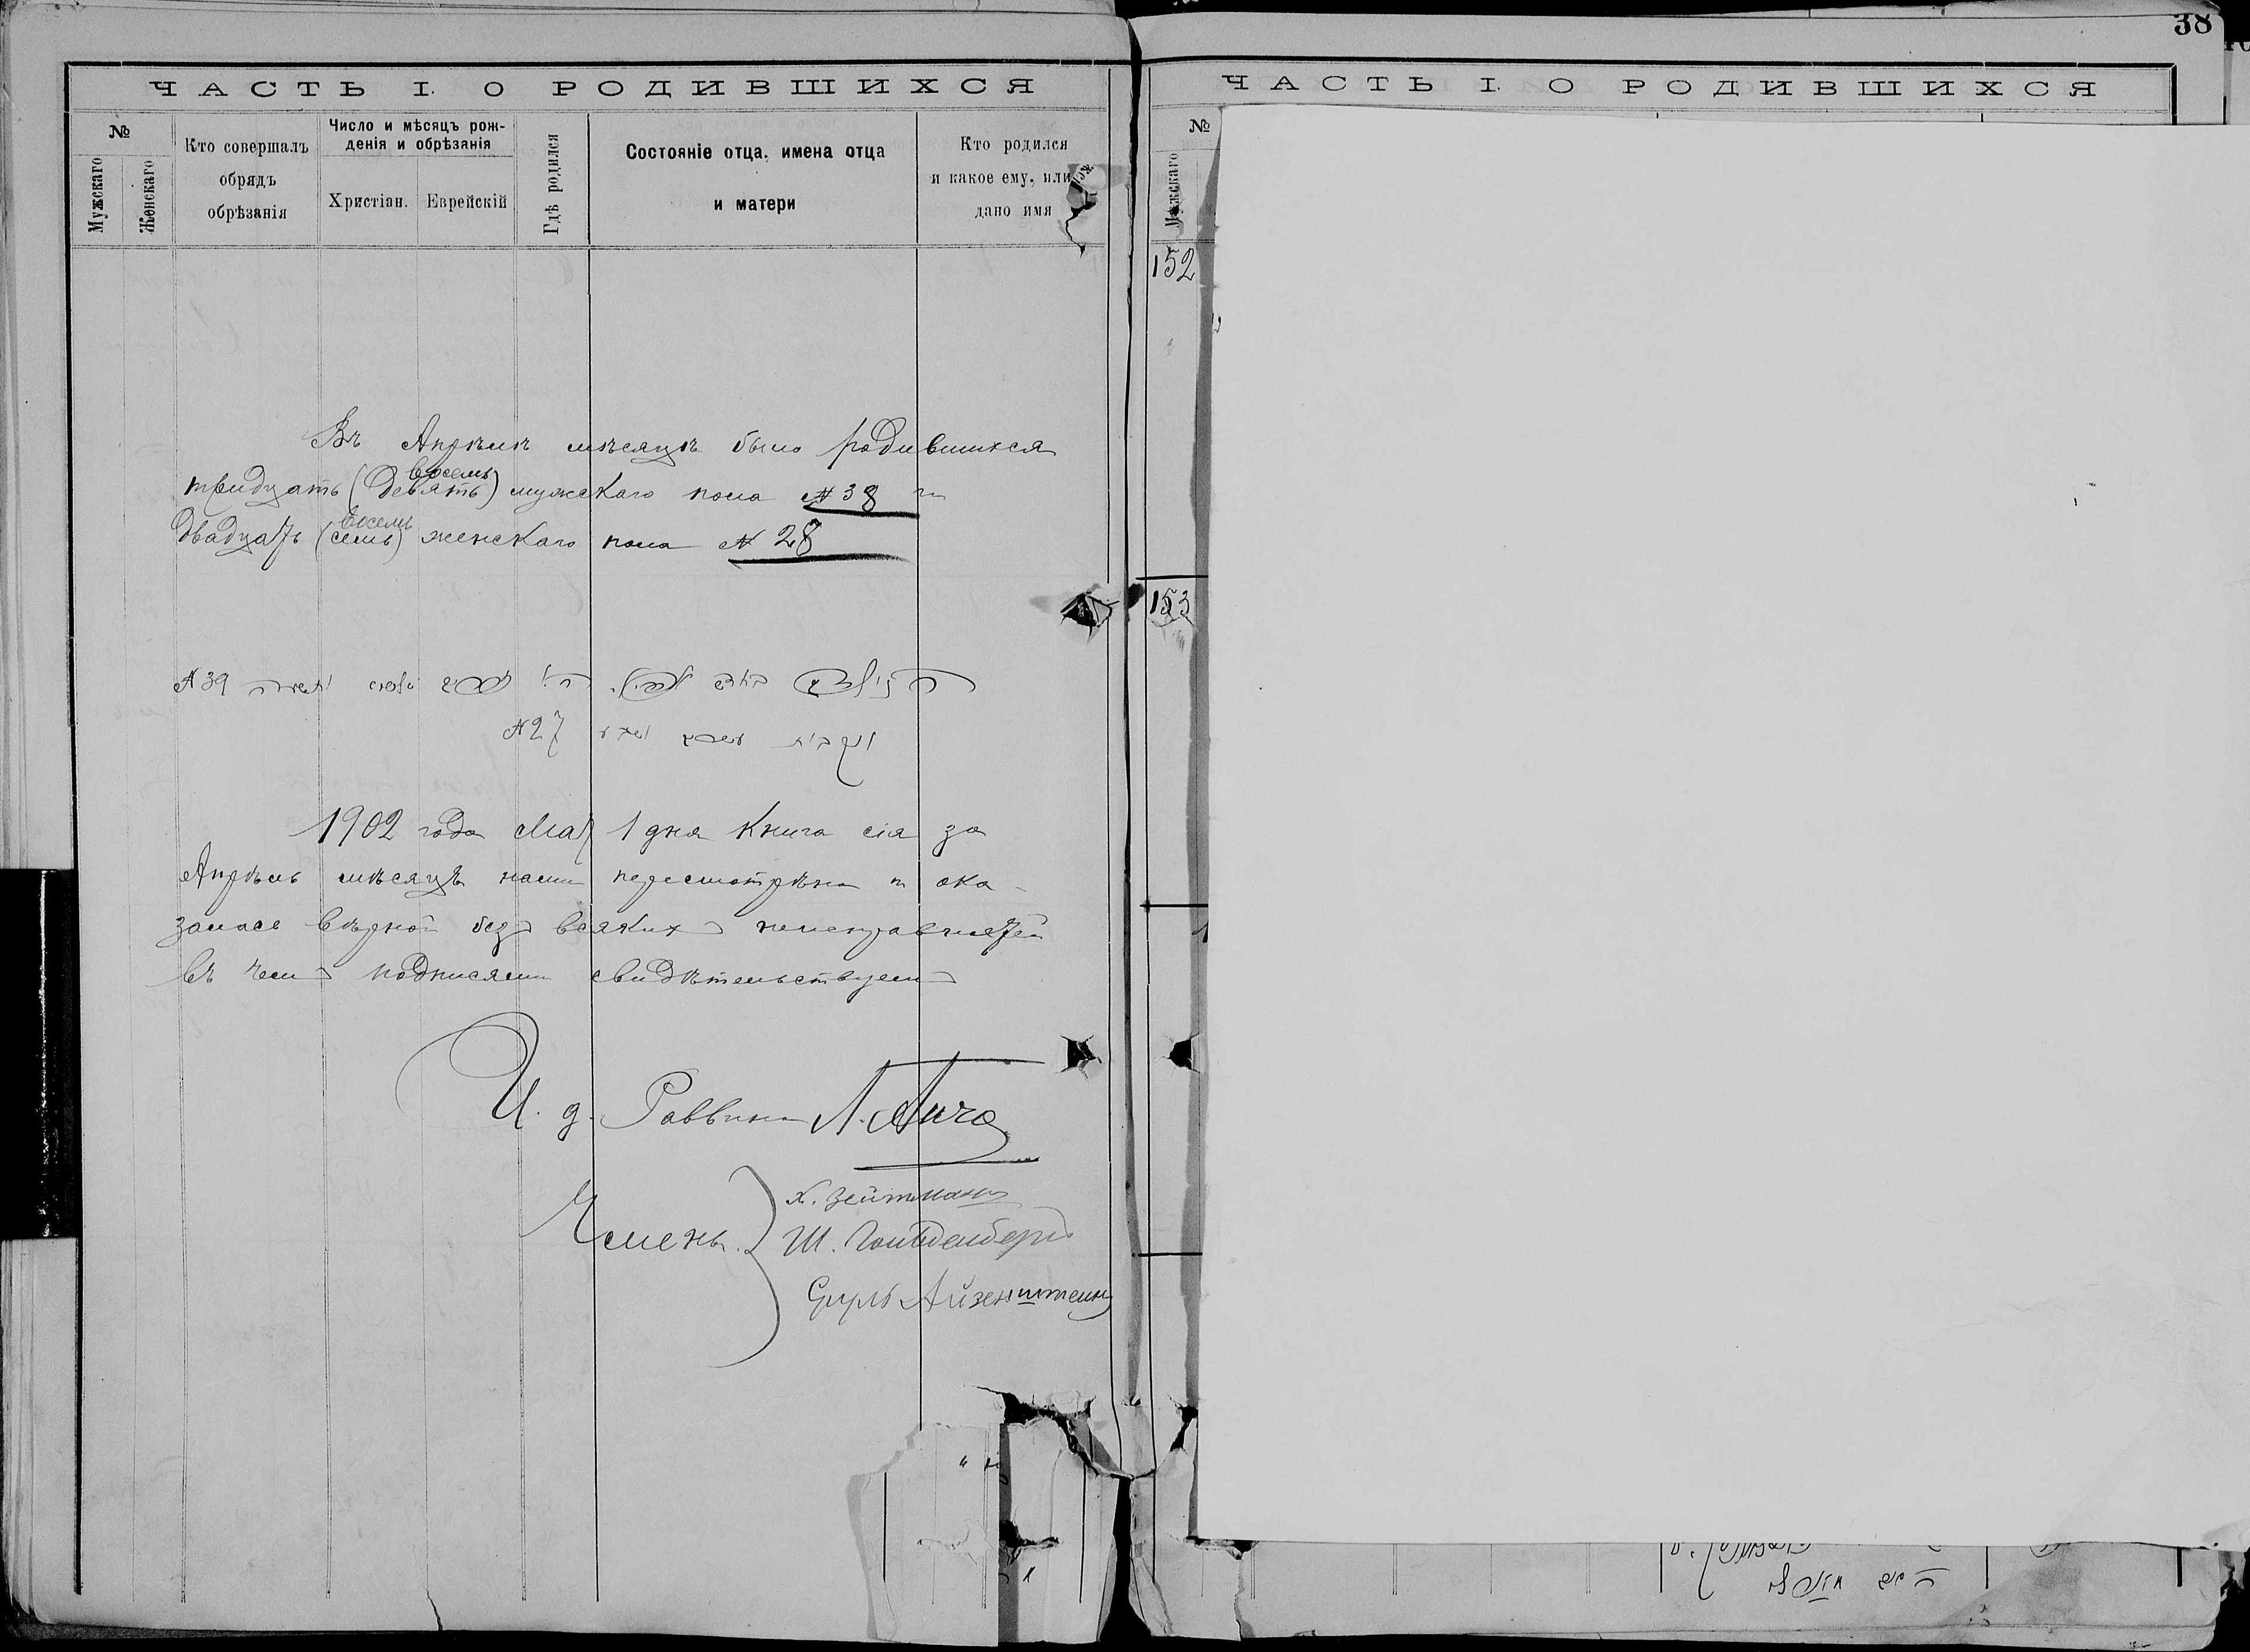 38
ЧАСТЬ I. О РОДИВШИХСЯ
№
Мужскаго
Женскаго
Кто совершалъ
обрядъ
обрѣзанія
Число и мѣсяцъ рож-
денія и обрѣзанія
Христіан.
Еврейскій
Гдѣ родился
Состояніе отца, имена отца
и матери
Кто родился
и какое ему, или
дано имя
Въ Апрѣлѣ мѣсяцѣ было родившихся
восемь
тридцать (девять) мужскаго пола № 38 и
восемь
двадцать (семь) женскаго пола № 28
№ 39
№ 27
1902 года Мая 1 дня Книга сія за
Апрѣль мѣсяцъ нами пересмотрѣна и ока-
залась вѣрной безъ всякихъ неисправностей
въ чемъ подписями свидѣтельствуемъ
И. д. Раввина
Члены
Х. Зейтманъ
Ш. Гольденбергъ
Сруль Айзенштейнъ
ЧАСТЬ I. О РОДИВШИХСЯ
№
Мужскаго
152
153